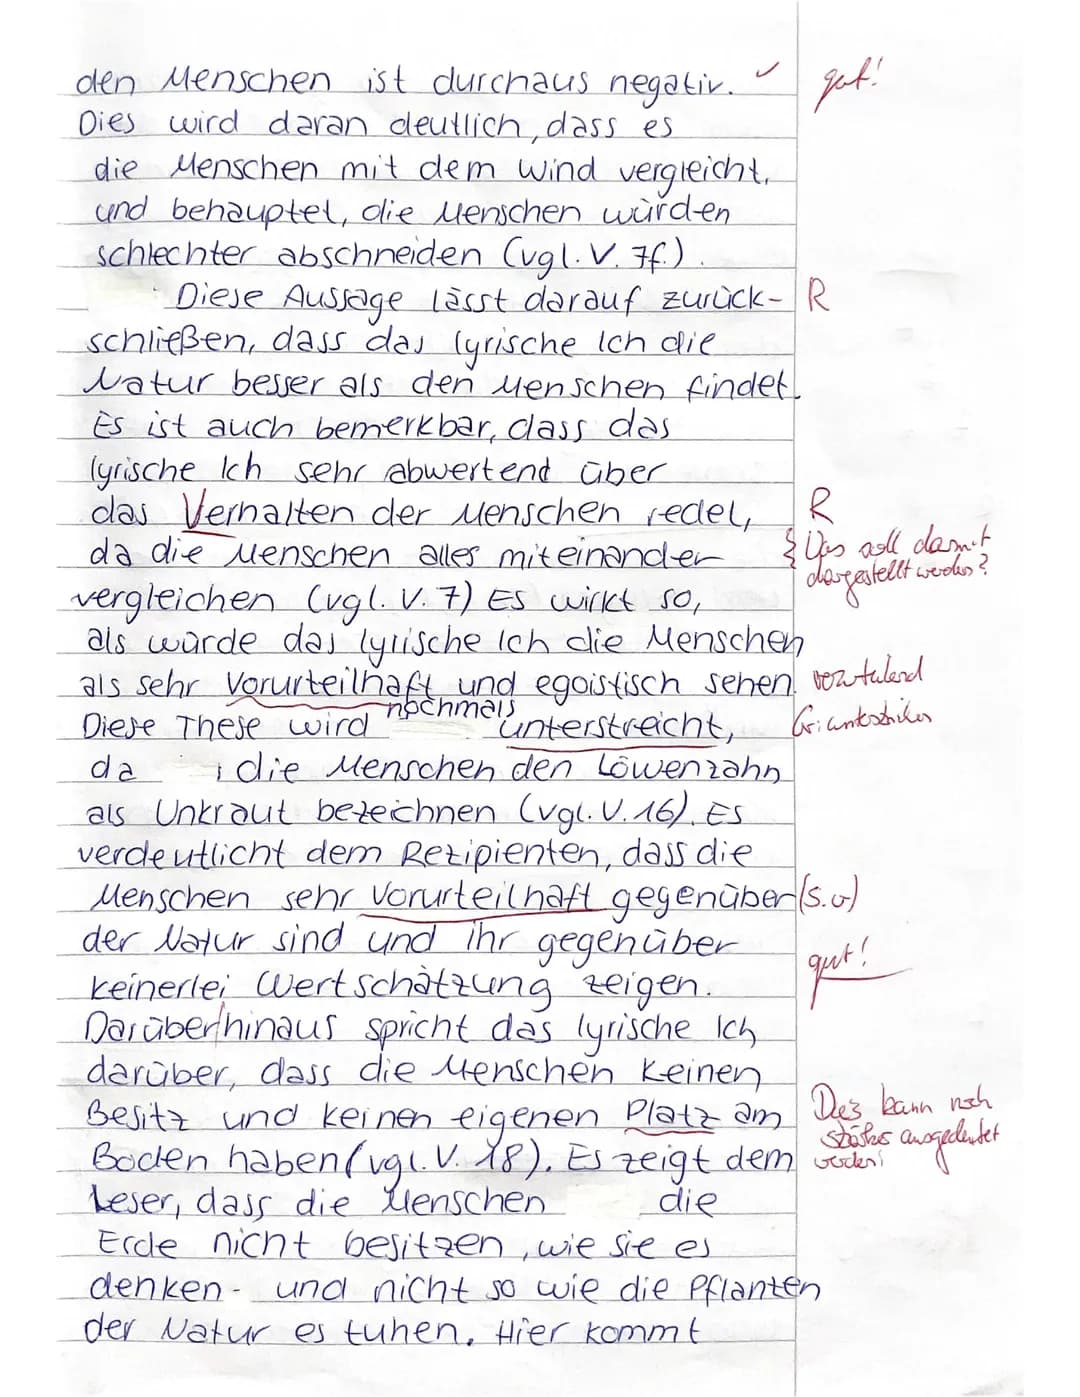 den Menschen ist durchaus negativ. ✓ gut!
Dies wird daran deutlich, dass es
die Menschen mit dem Wind vergleicht,
und behauptet, die Menschen würden
schlechter abschneiden (vgl. V. 7f.).
Diese Aussage lässt darauf zurück- R
schließen, dass das lyrische Ich die
Natur besser als den Menschen findet.
Es ist auch bemerkbar, dass das
lyrische Ich sehr abwertend über
das Verhalten der Menschen redet, R
da die Menschen alles miteinander { Was soll damit
dargestellt werden?
vergleichen (vgl. V. 7) Es wirkt so,
als würde das lyrische Ich die Menschen
als sehr Vorurteilhaft und egoistisch sehen.
Diese These wird nochmals unterstreicht,
da die Menschen den Löwenzahn
als Unkraut bezeichnen (vgl. V. 16). Es
verdeutlicht dem Rezipienten, dass die
Menschen sehr Vorurteilhaft gegenüber (s.o)
der Natur sind und ihr gegenüber
keinerlei Wertschätzung zeigen. gut!
Darüber/hinaus spricht das lyrische Ich
darüber, dass die Menschen keinen
Besitz und keinen eigenen Platz am Dies kann noch
stärker ausgedeutet
werden!
Boden haben (vgl. V. 18). Es zeigt dem
Leser, dass die Menschen die
Erde nicht besitzen, wie sie es
denken - und nicht so wie die Pflanten
der Natur es tuhen. Hier kommt